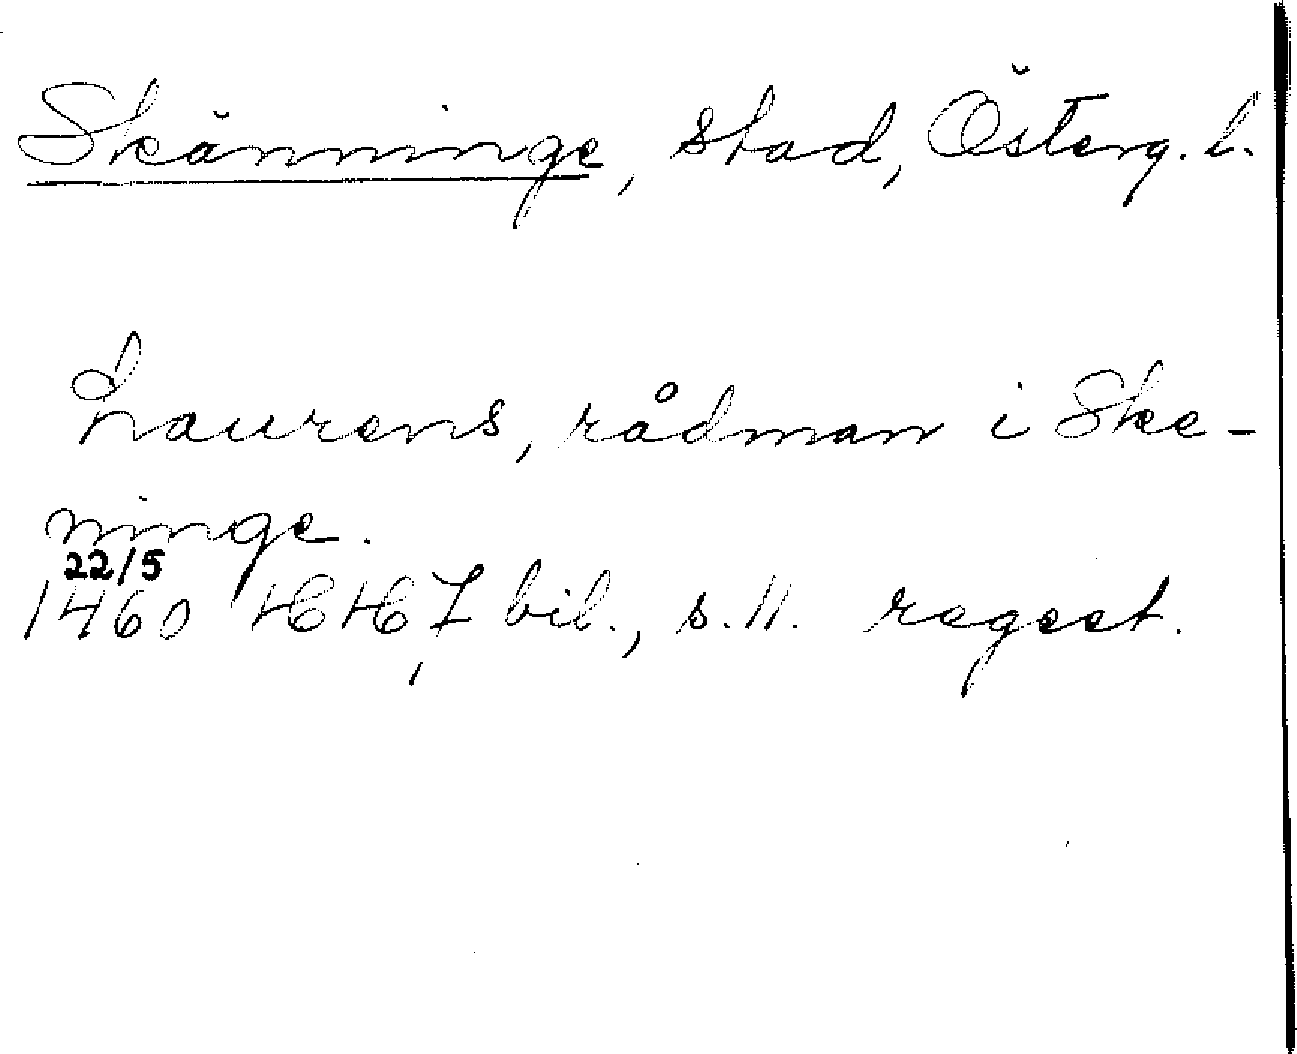 Skänninge, stad, Österg. l.
Laurens, rådman i Ske-
ninge.
22/5
1460 HH, 7 bil., s. 11. regest.